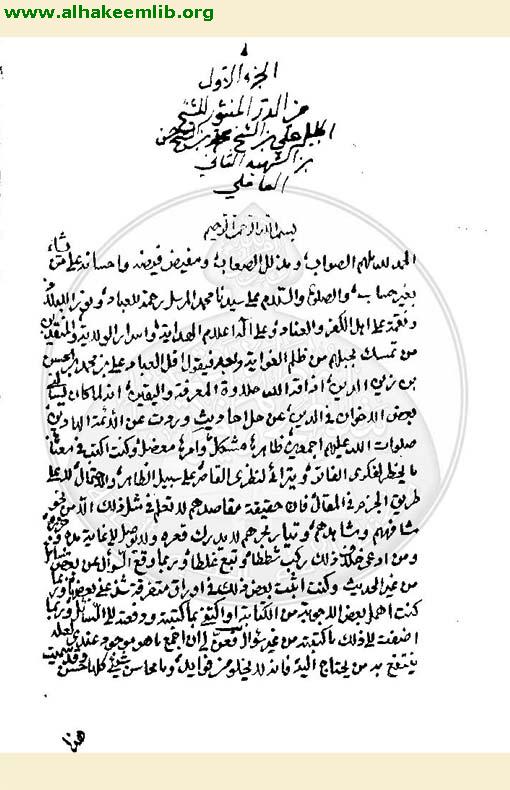 www.alhakeemlib.org
الجزء الأول
من الدر المنثور للشيخ
الجليل علي بن الشيخ محمد بن الشيخ حسن
بن الشهيد الثاني
العاملي
بسم الله الرحمن الرحيم
الحمد لله ملهم الصواب، ومذلل الصعاب، ومفيض فيوضه واحسانه على من شاء
بغير حساب، والصلوة والسلام على سيدنا محمد المرسل رحمة للعباد، ونورا للبلاد
ونقمة على اهل الكفر والعناد، وعلى آله اعلام الهداية، واسرار الولاية، والمنقذين
من تمسك بحبلهم من ظلم الغواية، وبعد فيقول اقل العباد علي بن محمد بن الحسن
بن زين الدين، اذاقه الله حلاوة المعرفة واليقين، انه لما كان يسألني
بعض الاخوان في الدين، عن حل احاديث وردت عن الأئمة الهادين
صلوات الله عليهم اجمعين، ظاهرها مشكل، وامرها معضل، وكنت اكتب في معناها
ما يخطر لفكري الفاتر، ويتراءى لنظري القاصر، على سبيل الظاهر، والاحتمال لا على
طريق الجزم في المقال، فان حقيقة مقاصدهم لا تعلم في مثل ذلك الا من نحو
مشافهتهم ومشاهدتهم، وتيار بحرهم لا يدرك قعره، ولا يوصل الى غاية مده وجزره
ومن ادعى خلاف ذلك ركب شططا، وتبع غلطا، وربما وقع السؤال عن بعض مسائل
من غير الحديث، وكنت اثبت بعض ذلك في اوراق متفرقة تشذ على بعضها، وربما
كنت اهمل بعض الاجوبة من الكتابة او اكتفي بما كتبته ودفعته الى السائل، وربما
اضفت الى ذلك ما كتبته من غير سؤال، فعنّ لي ان اجمع ما هو موجود عندي لعله
ينتفع به من يحتاج اليه، فانه لا يخلو من فوايد، وما محاسن شيء كله حسن وقد سميت
هذا